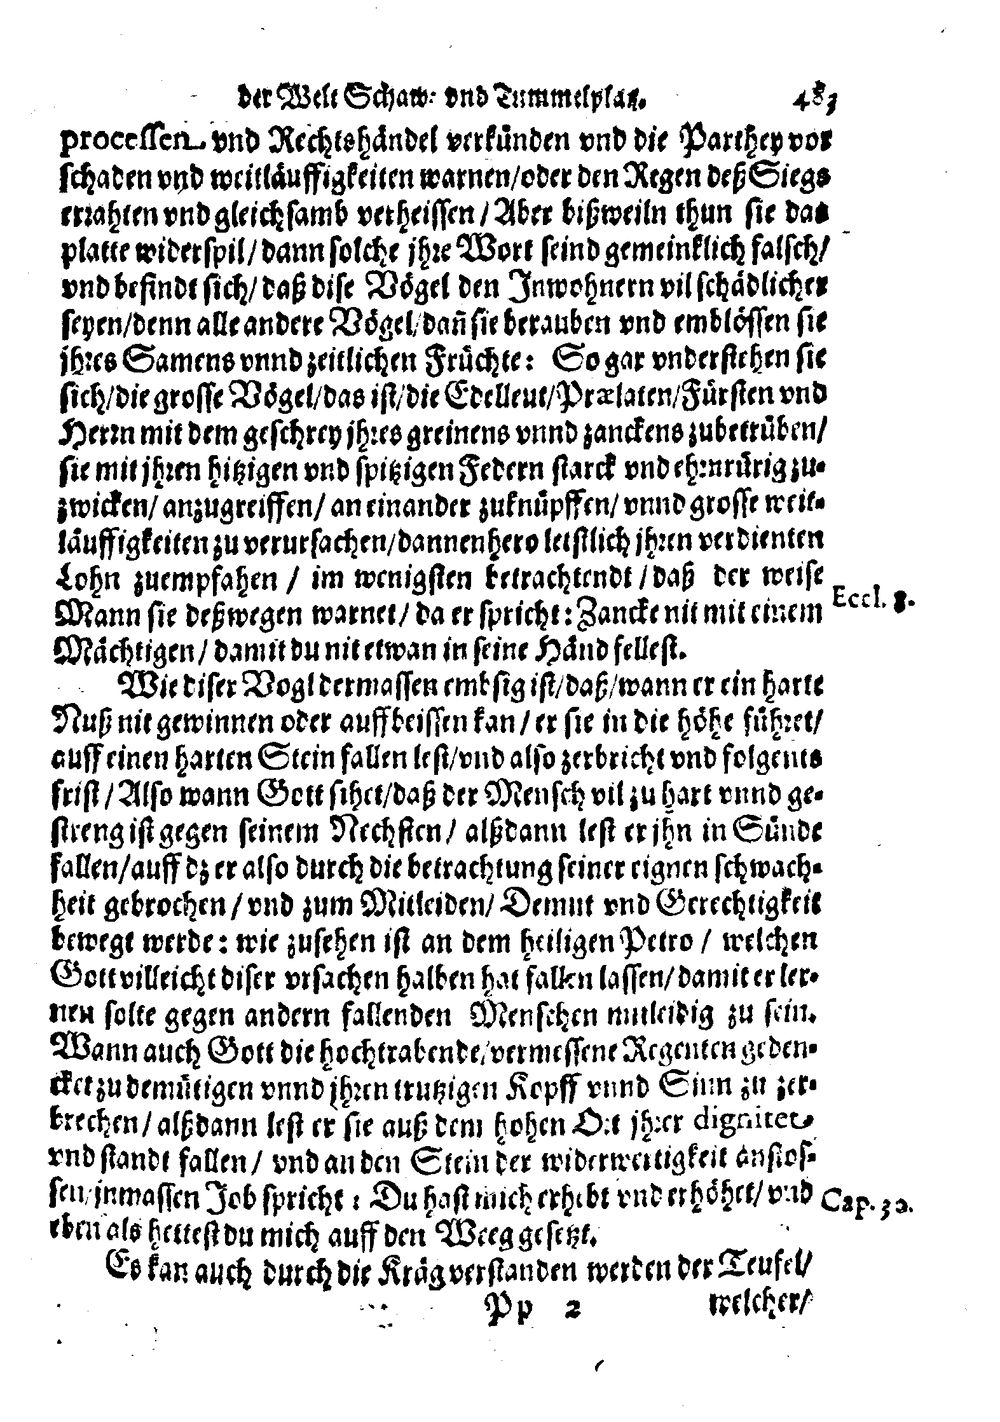 der Welt Schaw- vnd Tummelplatz. 483
processen vnd Rechtshändel verkünden vnd die Parthey vor
schaden vnd weitläuffigkeiten warnen/oder den Regen deß Siegs
errahten vnd gleichsamb verheissen/ Aber bißweiln thun sie das
platte widerspil/ dann solche jhre Wort seind gemeinklich falsch/
vnd befindt sich/ daß dise Vögel den Inwohnern vil schädlicher
seyen/denn alle andere Vögel/dañ sie berauben vnd emblössen sie
jhres Samens vnnd zeitlichen Früchte: So gar vnderstehen sie
sich/die grosse Vögel/das ist/die Edelleut/Prælaten/Fürsten vnd
Herrn mit dem geschrey jhres greinens vnnd zanckens zubetrüben/
sie mit jhren hitzigen vnd spitzigen Federn starck vnd ehrnrürig zu-
zwicken/ anzugreiffen/ an einander zuknüpffen/ vnnd grosse weit-
läuffigkeiten zu verursachen/dannenhero letstlich jhren verdienten
Lohn zuempfahen / im wenigsten betrachtendt / daß der weise
Mann sie deßwegen warnet/ da er spricht: Zancke nit mit einem Eccl. 8.
Mächtigen/ damit du nit etwan in seine Händ fellest.
Wie diser Vogl dermassen embsig ist/daß/wann er ein harte
Nuß nit gewinnen oder auffbeissen kan/ er sie in die höhe führet/
auff einen harten Stein fallen lest/vnd also zerbricht vnd folgents
frist/ Also wann Gott sihet/daß der Mensch vil zu hart vnnd ge-
streng ist gegen seinem Nechsten/ alßdann lest er jhn in Sünde
fallen/auff dz er also durch die betrachtung seiner eignen schwach-
heit gebrochen/ vnd zum Mitleiden/ Demut vnd Gerechtigkeit
bewegt werde: wie zusehen ist an dem heiligen Petro/ welchen
Gott villeicht diser vrsachen halben hat fallen lassen/damit er ler-
nen solte gegen andern fallenden Menschen mitleidig zu sein.
Wann auch Gott die hochtrabende/vermessene Regenten geden-
cket zu demütigen vnnd jhren trutzigen Kopff vnnd Sinn zu zer-
brechen/ alßdann lest er sie auß dem hohen Ort jhrer dignitet
vnd standt fallen/ vnd an den Stein der widerwertigkeit anstos-
sen/inmassen Job spricht: Du hast mich erhebt vnd erhöhet/ vnd Cap. 30.
eben als hettest du mich auff den Weeg gesetzt.
Es kan auch durch die Kräg verstanden werden der Teufel/
Pp 2 welcher/